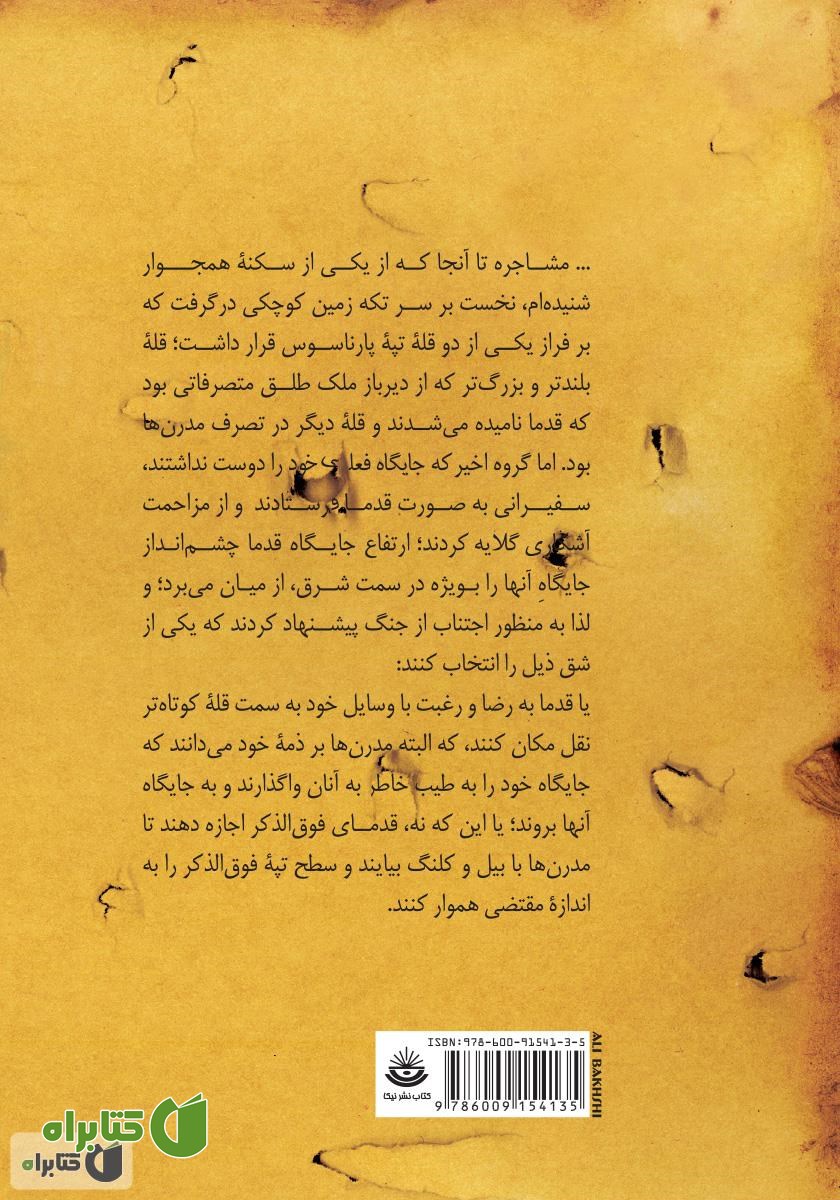 ... مشاجره تا آنجا که از یکی از سکنهٔ همجوار
شنیده‌ام، نخست بر سر تکه زمین کوچکی درگرفت که
بر فراز یکی از دو قلهٔ تپهٔ پارناسوس قرار داشت؛ قلهٔ
بلندتر و بزرگ‌تر که از دیرباز ملک طلق متصرفاتی بود
که قدما نامیده می‌شدند و قلهٔ دیگر در تصرف مدرن‌ها
بود. اما گروه اخیر که جایگاه فعلی خود را دوست نداشتند،
سفیرانی به صورت قدما فرستادند و از مزاحمت
آشکاری گلایه کردند؛ ارتفاع جایگاه قدما چشم‌انداز
جایگاهِ آنها را بویژه در سمت شرق، از میان می‌برد؛ و
لذا به منظور اجتناب از جنگ پیشنهاد کردند که یکی از
شق ذیل را انتخاب کنند:
یا قدما به رضا و رغبت با وسایل خود به سمت قلهٔ کوتاه‌تر
نقل مکان کنند، که البته مدرن‌ها بر ذمهٔ خود می‌دانند که
جایگاه خود را به طیب خاطر به آنان واگذارند و به جایگاه
آنها بروند؛ یا این که نه، قدمای فوق‌الذکر اجازه دهند تا
مدرن‌ها با بیل و کلنگ بیایند و سطح تپهٔ فوق‌الذکر را به
اندازهٔ مقتضی هموار کنند.
ISBN: 978-600-91541-3-5
کتاب نشر نیکا
9 786009 154135
ALI BAKHSHI
کتابراه
کتابراه